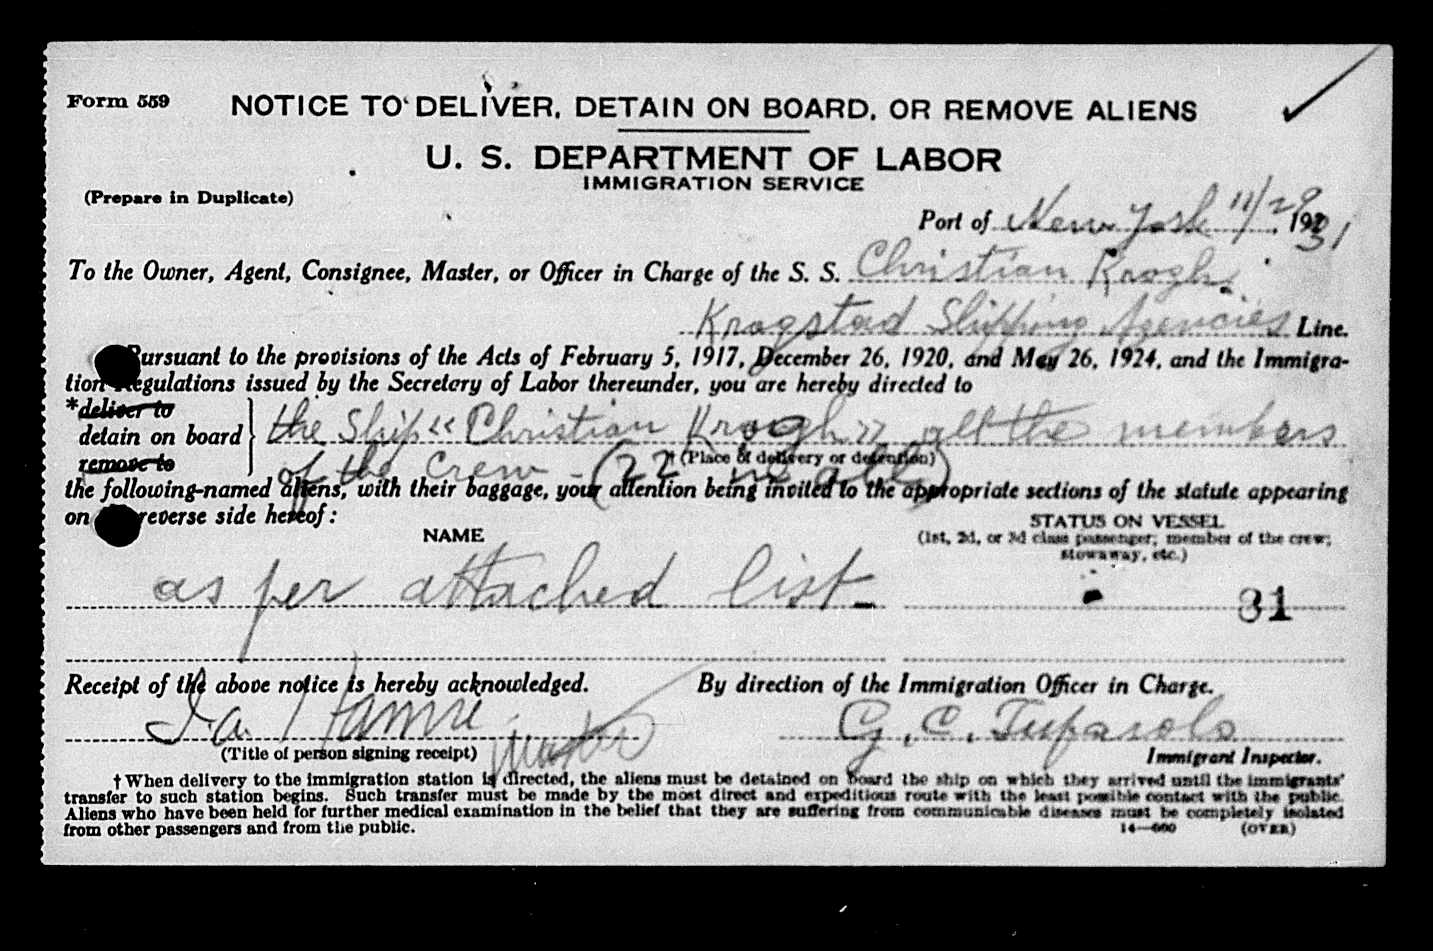 Form 559
NOTICE TO DELIVER, DETAIN ON BOARD, OR REMOVE ALIENS
U. S. DEPARTMENT OF LABOR
IMMIGRATION SERVICE
(Prepare in Duplicate)
Port of New York 11/29, 1931
To the Owner, Agent, Consignee, Master, or Officer in Charge of the S. S. Christian Krogh,
Krogstad Shipping Agencies Line.
Pursuant to the provisions of the Acts of February 5, 1917, December 26, 1920, and May 26, 1924, and the Immigra-
tion Regulations issued by the Secretary of Labor thereunder, you are hereby directed to
*deliver to
detain on board the Ship "Christian Krogh" all the members
remove to
†(Place of delivery or detention)
of the crew - (22 in all)
the following-named aliens, with their baggage, your attention being invited to the appropriate sections of the statute appearing
on reverse side hereof:
NAME
STATUS ON VESSEL
(1st, 2d, or 3d class passenger; member of the crew;
stowaway, etc.)
as per attached list-
31
Receipt of the above notice is hereby acknowledged.
By direction of the Immigration Officer in Charge.
Hamre
master
G. C.
(Title of person signing receipt)
Immigrant Inspector.
† When delivery to the immigration station is directed, the aliens must be detained on board the ship on which they arrived until the immigrants'
transfer to such station begins. Such transfer must be made by the most direct and expeditious route with the least possible contact with the public.
Aliens who have been held for further medical examination in the belief that they are suffering from communicable diseases must be completely isolated
from other passengers and from the public.
14—600
(OVER)